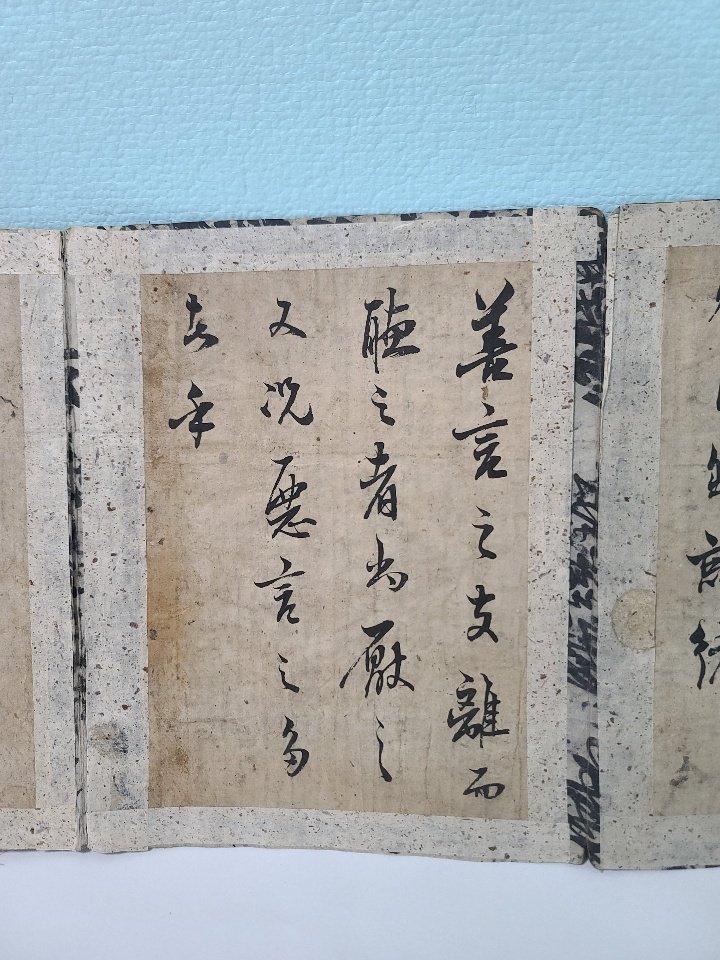 善言之支離而
聽之者尚厭之
又況惡言之多
者乎